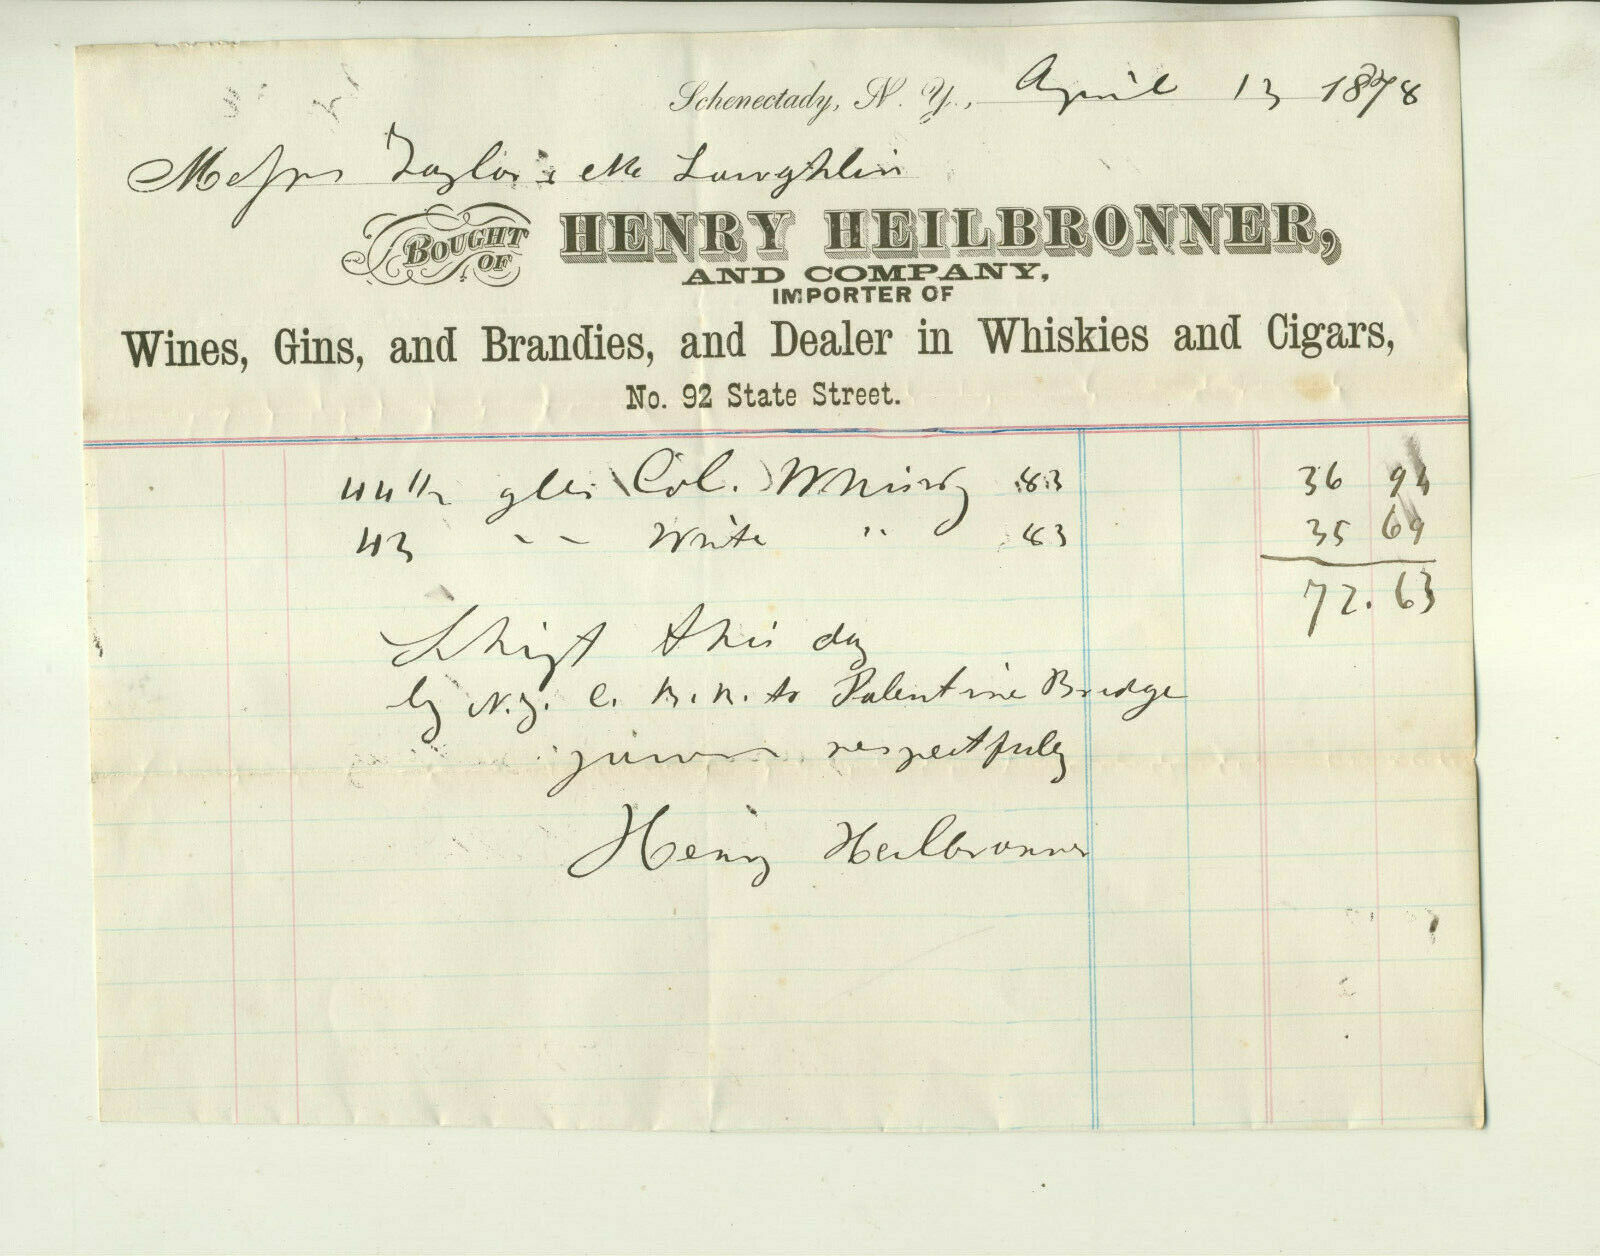 Schenectady, N. Y., April 13 1878
Messrs Taylor & Mc Laughlin
BOUGHT OF HENRY HEILBRONNER,
AND COMPANY,
IMPORTER OF
Wines, Gins, and Brandies, and Dealer in Whiskies and Cigars,
No. 92 State Street.
44 1/2 glls (Col.) Whisky .83 36 94
43 " " White " .83 35 69
72.63
Shipt this day
by N.Y. C. R. R. to Palentine Bridge
yours respectfuly
Henry Heilbronner